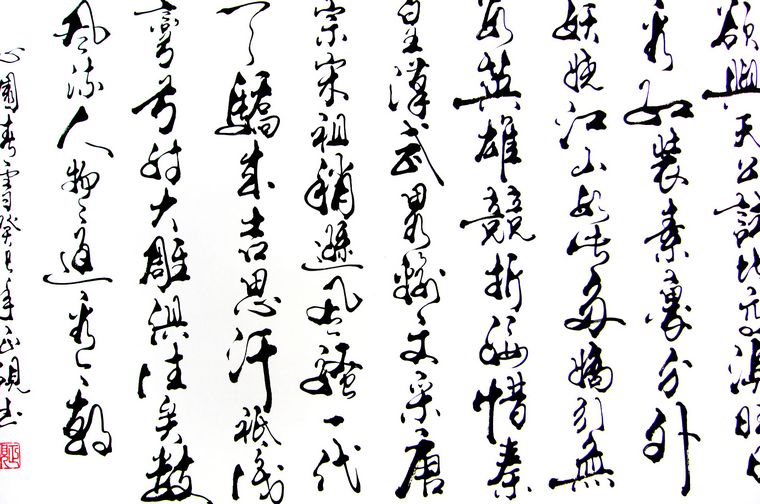 欲與天公試比高須晴日
看紅裝素裹分外
妖嬈江山如此多嬌引無
數英雄競折腰惜秦
皇漢武略輸文采唐
宗宋祖稍遜風騷一代
天驕成吉思汗祇識
彎弓射大雕俱往矣數
風流人物還看今朝
沁園春雪癸巳年